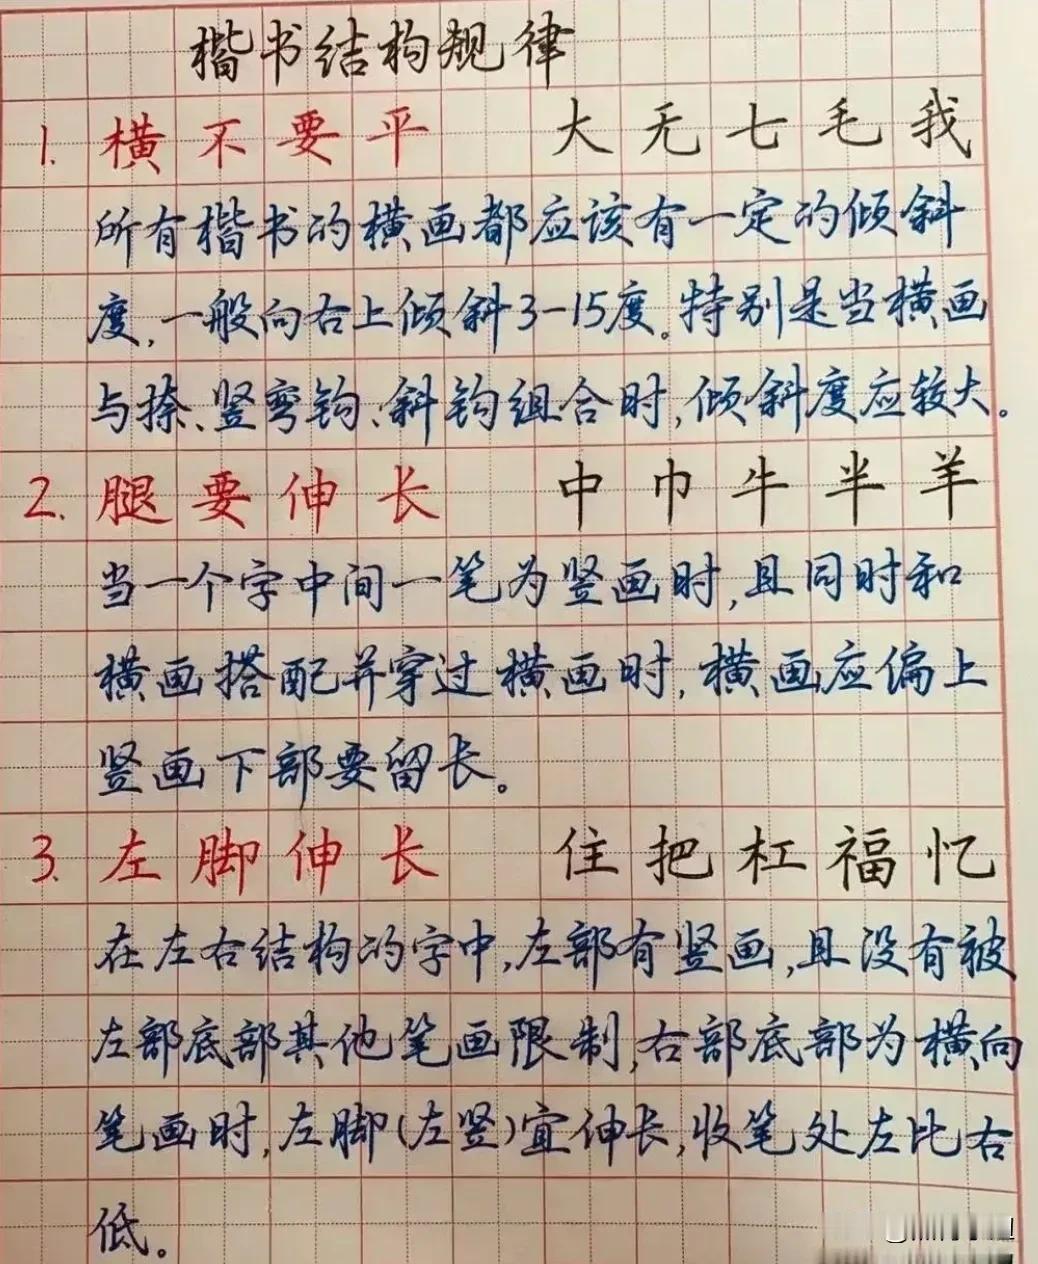 楷书结构规律
1. 横不要平 大无七毛我
所有楷书的横画都应该有一定的倾斜
度,一般向右上倾斜3-15度。特别是当横画
与捺、竖弯钩、斜钩组合时,倾斜度应较大。
2. 腿要伸长 中巾牛半羊
当一个字中间一笔为竖画时,且同时和
横画搭配并穿过横画时,横画应偏上
竖画下部要留长。
3. 左脚伸长 住把杠福忆
在左右结构的字中,左部有竖画,且没有被
左部底部其他笔画限制,右部底部为横向
笔画时,左脚(左竖)宜伸长,收笔处左比右
低。